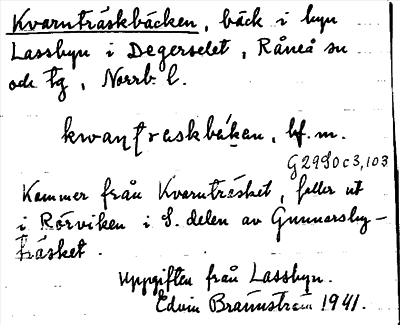 Kvarnträskbäcken, bäck i byn
Lassbyn i Degerselet, Råneå sn
och tg, Norrb. l.
kwaṇtraskbäken, bf. m.
G2980c3,103
Kommer från Kvarnträsket, faller ut
i Rörviken i S. delen av Gunnarsby-
träsket.
Uppgiften från Lassbyn.
Edvin Brännström 1941.